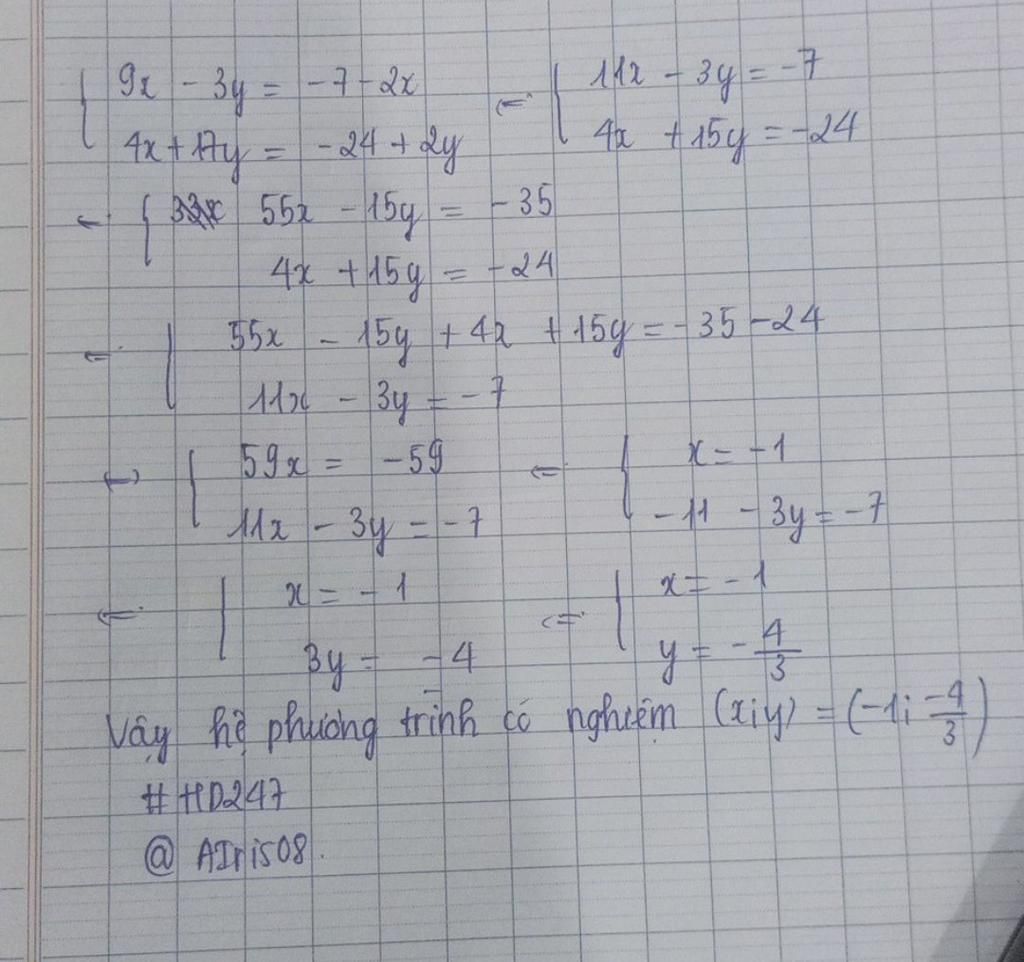 { 9x - 3y = -7 - 2x ⇔ { 11x - 3y = -7
4x + 17y = -24 + 2y 4x + 15y = -24
⇔ { 55x - 15y = -35
4x + 15y = -24
⇔ { 55x - 15y + 4x + 15y = -35 - 24
11x - 3y = -7
⇔ { 59x = -59 ⇔ { x = -1
11x - 3y = -7 -11 - 3y = -7
⇔ { x = -1 ⇔ { x = -1
3y = -4 y = -4/3
Vậy hệ phương trình có nghiệm (x;y) = (-1; -4/3)
#HD247
@ AIris08.